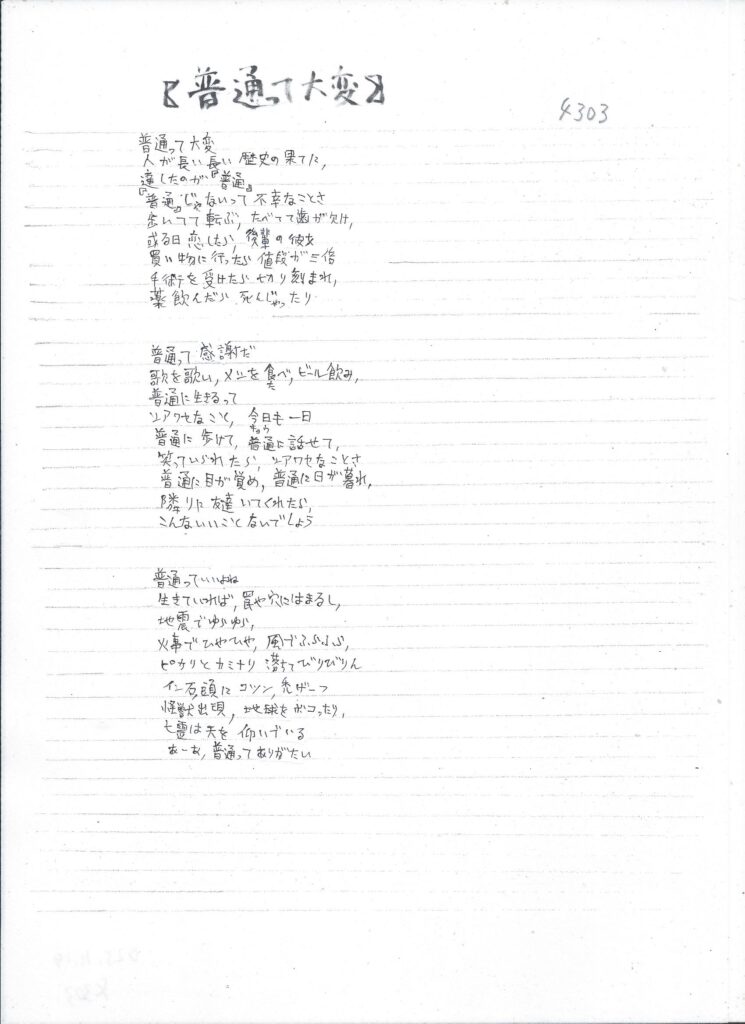 【普通って大変】
4303
普通って大変
人が長い長い歴史の果てに,
達したのが『普通』
『普通』じゃないって不幸なことさ
歩いてて転ぶ, たべてて歯が欠け,
或る日恋したら, 後輩の彼女
買い物に行ったら値段が三倍
手術を受けたら切り刻まれ,
薬飲んだら死んじゃったり
普通って感謝だ
歌を歌い, メシを食べ, ビール飲み,
た
普通に生きるって
シアワセなこと, 今日も一日
きょう
普通に歩けて, 普通に話せて,
笑っていられたら, シアワセなことさ
普通に目が覚め, 普通に日が暮れ,
隣りに友達いてくれたら,
こんないいことないでしょう
普通っていいよね
生きていれば, 罠や穴にはまるし,
地震でゆらゆら,
火事でひやひや, 風でふらふら,
ピカリとカミナリ落ちてびりびりん
石頭にコツン,
怪獣出現, 地球をボコったり,
は天を仰いでいる
あーあ, 普通ってありがたい